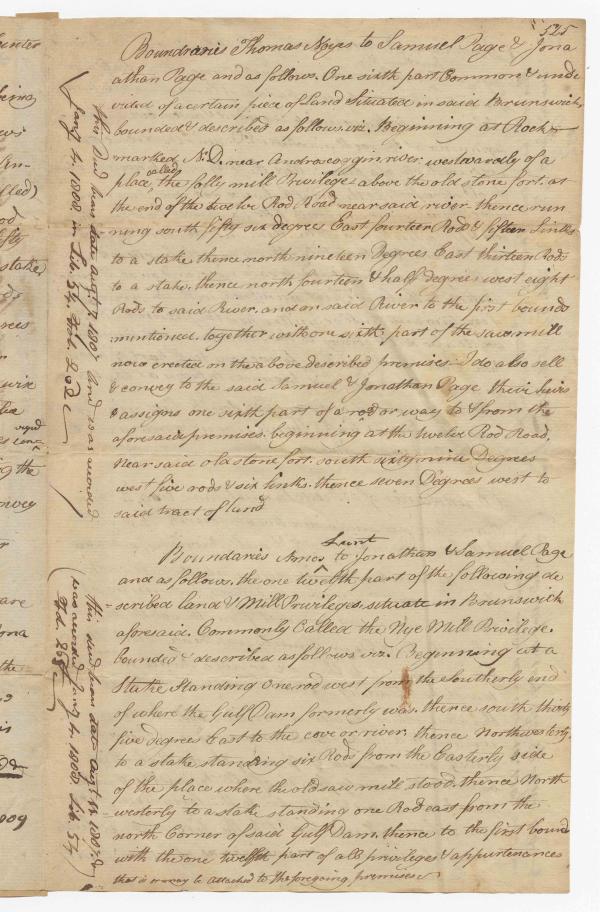 525
Boundraries Thomas Noyes to Samuel Page & Jona
athan Page and as follows. One sixth part Common & undi
vided of a certain piece of Land Situated in said Brunswick,
bounded & described as follows. viz. Beginning at Rock
marked N:D. near Androscoggin river, westwardly of a
place, called the folly mill Privilege above the old stone fort, at
the end of the twelve Rod Road near said river thence run
ning south fifty six degrees East fourteen Rods & fifteen Links
to a stake thence north nineteen Degrees East thirteen Rods
to a stake, thence north fourteen & half degrees west eight
Rods to said River, and on said River to the first bounds
mentioned, together with one sixth part of the saw mill
now erected on the above described premises. I do also sell
& convey to the said Samuel & Jonathan Page their heirs
& assigns one sixth part of a rod or way to & from the
aforesaid premises. beginning at the twelve Rod Road,
near said old stone fort. south sixty nine Degrees
west five rods & six links. thence seven Degrees west to
said tract of land
Boundaries Amos Lunt to Jonathan & Samuel Page
and as follows. the one twelfth part of the following de
scribed land & Mill Privileges. situate in Brunswick
aforesaid. Commonly Called the Nye Mill Privilege.
bounded & described as follows viz. Beginning at a
Stake Standing one rod west from the Southerly end
of where the Gulf Dam formerly was. thence south thirty
five degrees East to the cove or river. thence Northwesterly
to a stake standing six Rods from the Easterly side
of the place where the old saw mill stood. thence North
westerly to a stake standing one Rod east from the
north Corner of said Gulf Dam. thence to the first bound
with the one twelfth part of all privileges & appurtenances
that is or may be attached to the foregoing premises
this Deed bears date Augt 7. 1807 And was recorded
Jany 4. 1808 in Lib. 54 Fol.
this deed bears date Augt 12. 1807 &
was recorded Jany 4. 1808 Lib. 54